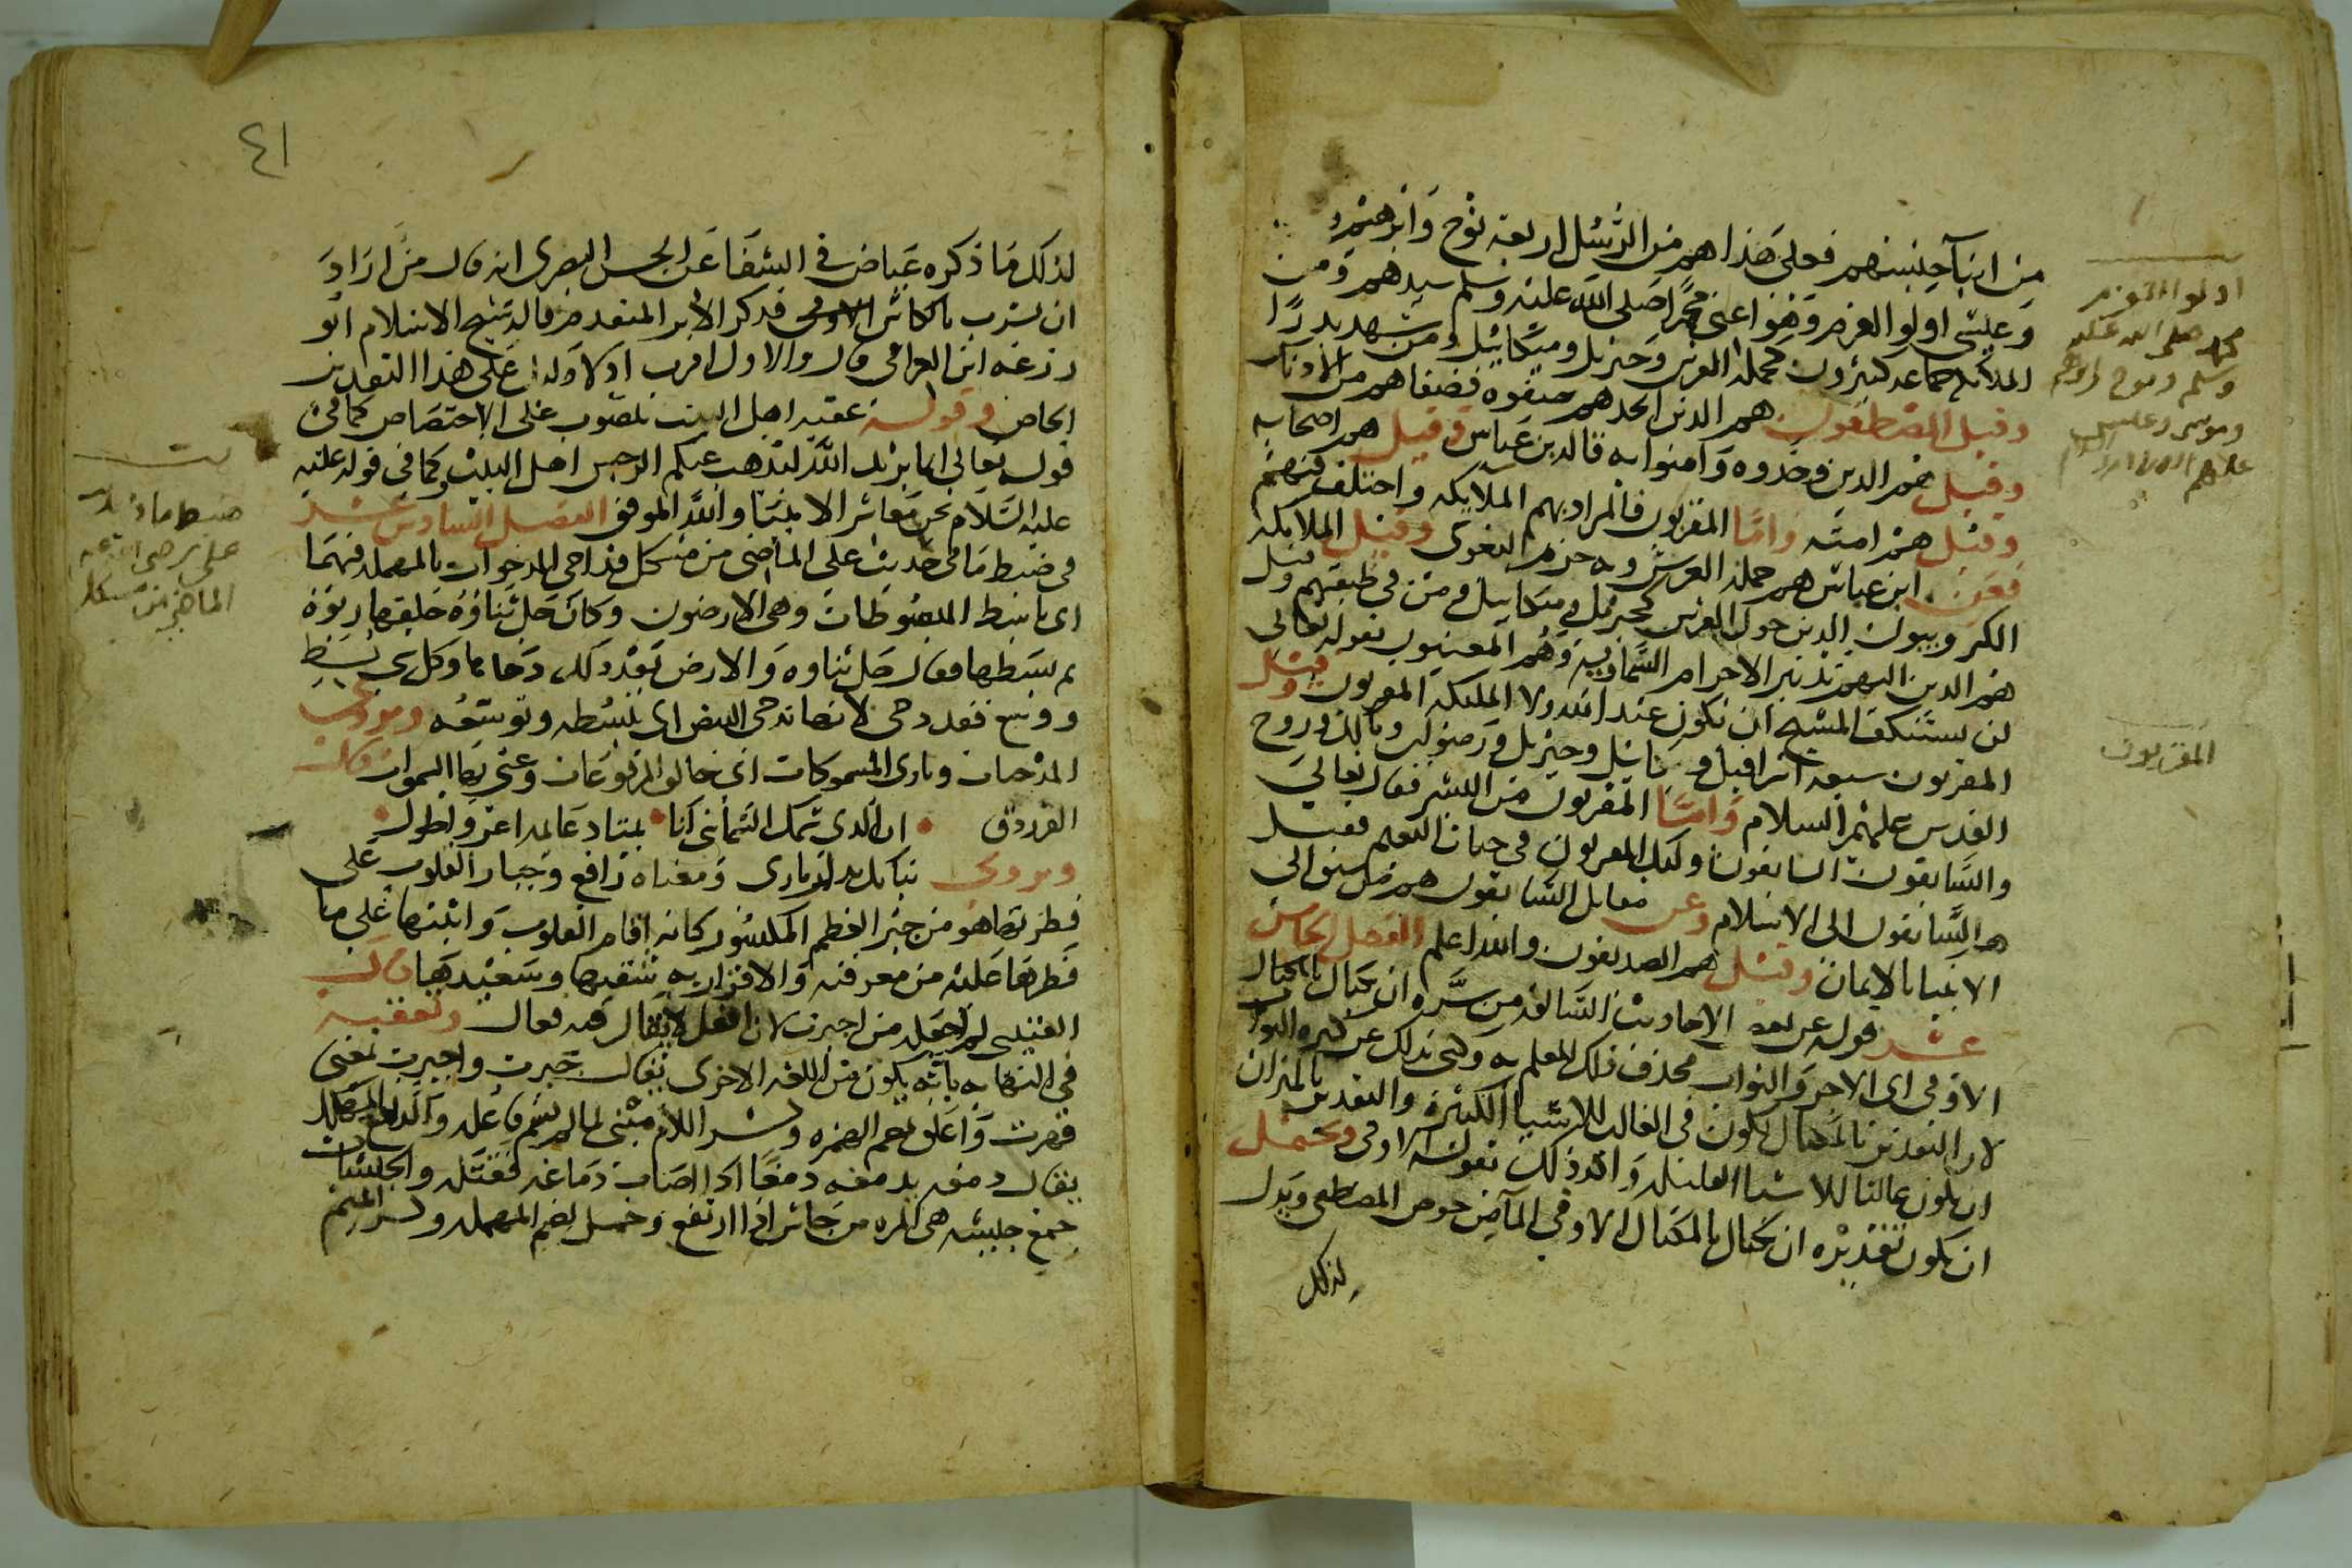 من ابناء جنسهم فعلى هذا هم من الرسل اربعة نوح وابرهيم
وعيسى اولوا العزم وهو اعنى محمدا صلى الله عليه وسلم سيدهم ومن
الملائكة جماعة كثيرون كحملة العرش وجبريل وميكائيل ومن شهد بدرا
وقيل المصطفون هم الذين اتخذهم صفوة فصفاهم من الادناس
وقيل هم الذين وحدوه وامنوا به قاله بن عباس وقيل هم اصحابه
وقيل هم امته واما المقربون فالمراد بهم الملايكة واختلف فيهم
فعن ابن عباس هم حملة العرش وبه جزم البغوى وقيل الملايكة
الكروبيون الذين حول العرش كجبريل وميكاييل ومن في طبقتهم وقيل
هم الذين اليهم تدبير الاجرام السماوية وهم المعنيون بقوله تعالى
لن يستنكف المسيح ان يكون عبد الله ولا الملئكة المقربون وقيل
المقربون سبعة اسرافيل و وجبريل ورضوان ومالك وروح
القدس عليهم السلام واما المقربون من البشر فقال تعالى
والسابقون السابقون اولئك المقربون في جنات النعيم فقيل
هم السابقون الى الاسلام وعن مقاتل السابقون هم من سبق الى
الانبيا بالايمان وقيل هم الصديقون والله اعلم الفصل الخامس
عشر قوله عن بعض الاحاديث السالفة من سره ان يكتال بالمكيال
الاوفى اى الاجر والثواب فحذف ذلك للعلم به وكنى بذلك عن كثرة الثواب
لان التقدير بالمكيال يكون في الغالب للاشيا الكثيرة والتقدير بالميزان
ان يكون غالبا للاشيا القليلة واكد ذلك بقوله الاوفى ويحتمل
ان يكون تقديره ان يكتال بالمكيال الاوفى الماء من حوض المصطفى ويدل
لذلك
اولوا العزم
محمد صلى الله عليه
وسلم ونوح وابرهيم
وموسى وعيسى
عليهم
المقربون
٤١
لذلك ما ذكره عياض في الشفا عن الحسن البصرى انه قال من اراد
ان يشرب بالكاس الاوفى فذكر الاثر المتقدم قال شيخ الاسلام ابو
زرعه ابن العراقى قال والاول اقرب اذ لا دليل على هذا التقدير
الخاص وقوله عقبه اهل البيت منصوب على الاختصاص كما في
قوله تعالى انما يريد الله ليذهب عنكم الرجس اهل البيت وكما في قوله عليه
عليه السلام نحن معاشر الانبيا والله الموفق الفصل السادس عشر
في ضبط ما فى حديث على الماضى من مشكل فداحى المدحوات بالمهملة فيهما
اى باسط المبسوطات وهى الارضون وكان جل ثناؤه خلقها ربوة
ثم بسطها فقال جل ثناوه والارض بعد ذلك دحاها وكل شي بسط
ووسع فقد دحى لانها تدحى البيض اى تبسطه وتوسعه ويروى
المدحيات وبارى المسموكات اى خالق المرفوعات وعنى بها السموات وقال
الفرزدق • ان الذى سمك السما بنى لنا • بيتا دعايمه اعز واطول •
ويروى سامك بدل بارى ومعناه رافع وجبار القلوب على
فطرتها هو من جبر العظم المكسور كانه اقام القلوب واثبتها على ما
فطرها عليه من معرفته والاقرار به شقيها وسعيدها قال
القتيبى لم اجعله من اجبرت لان افعل لا يقال فيه فعال وتعقبه
في النهاية بانه يكون من اللغة الاخرى يقال جبرت واجبرت بمعنى
قهرت واغلق بضم الهمزة وكسر اللام مبنى لما لم يسم فاعله والدامغ المهلك
يقال دمغه يدمغه دمغا اذا اصاب دماغه فقتله والجيشات
جمع جيشه هى المره من جاش اذا ارتفع وحمل بضم المهملة وكسر الميم
ضبط ما في حديث
على رضى الله عنه
الماضى من مشكل